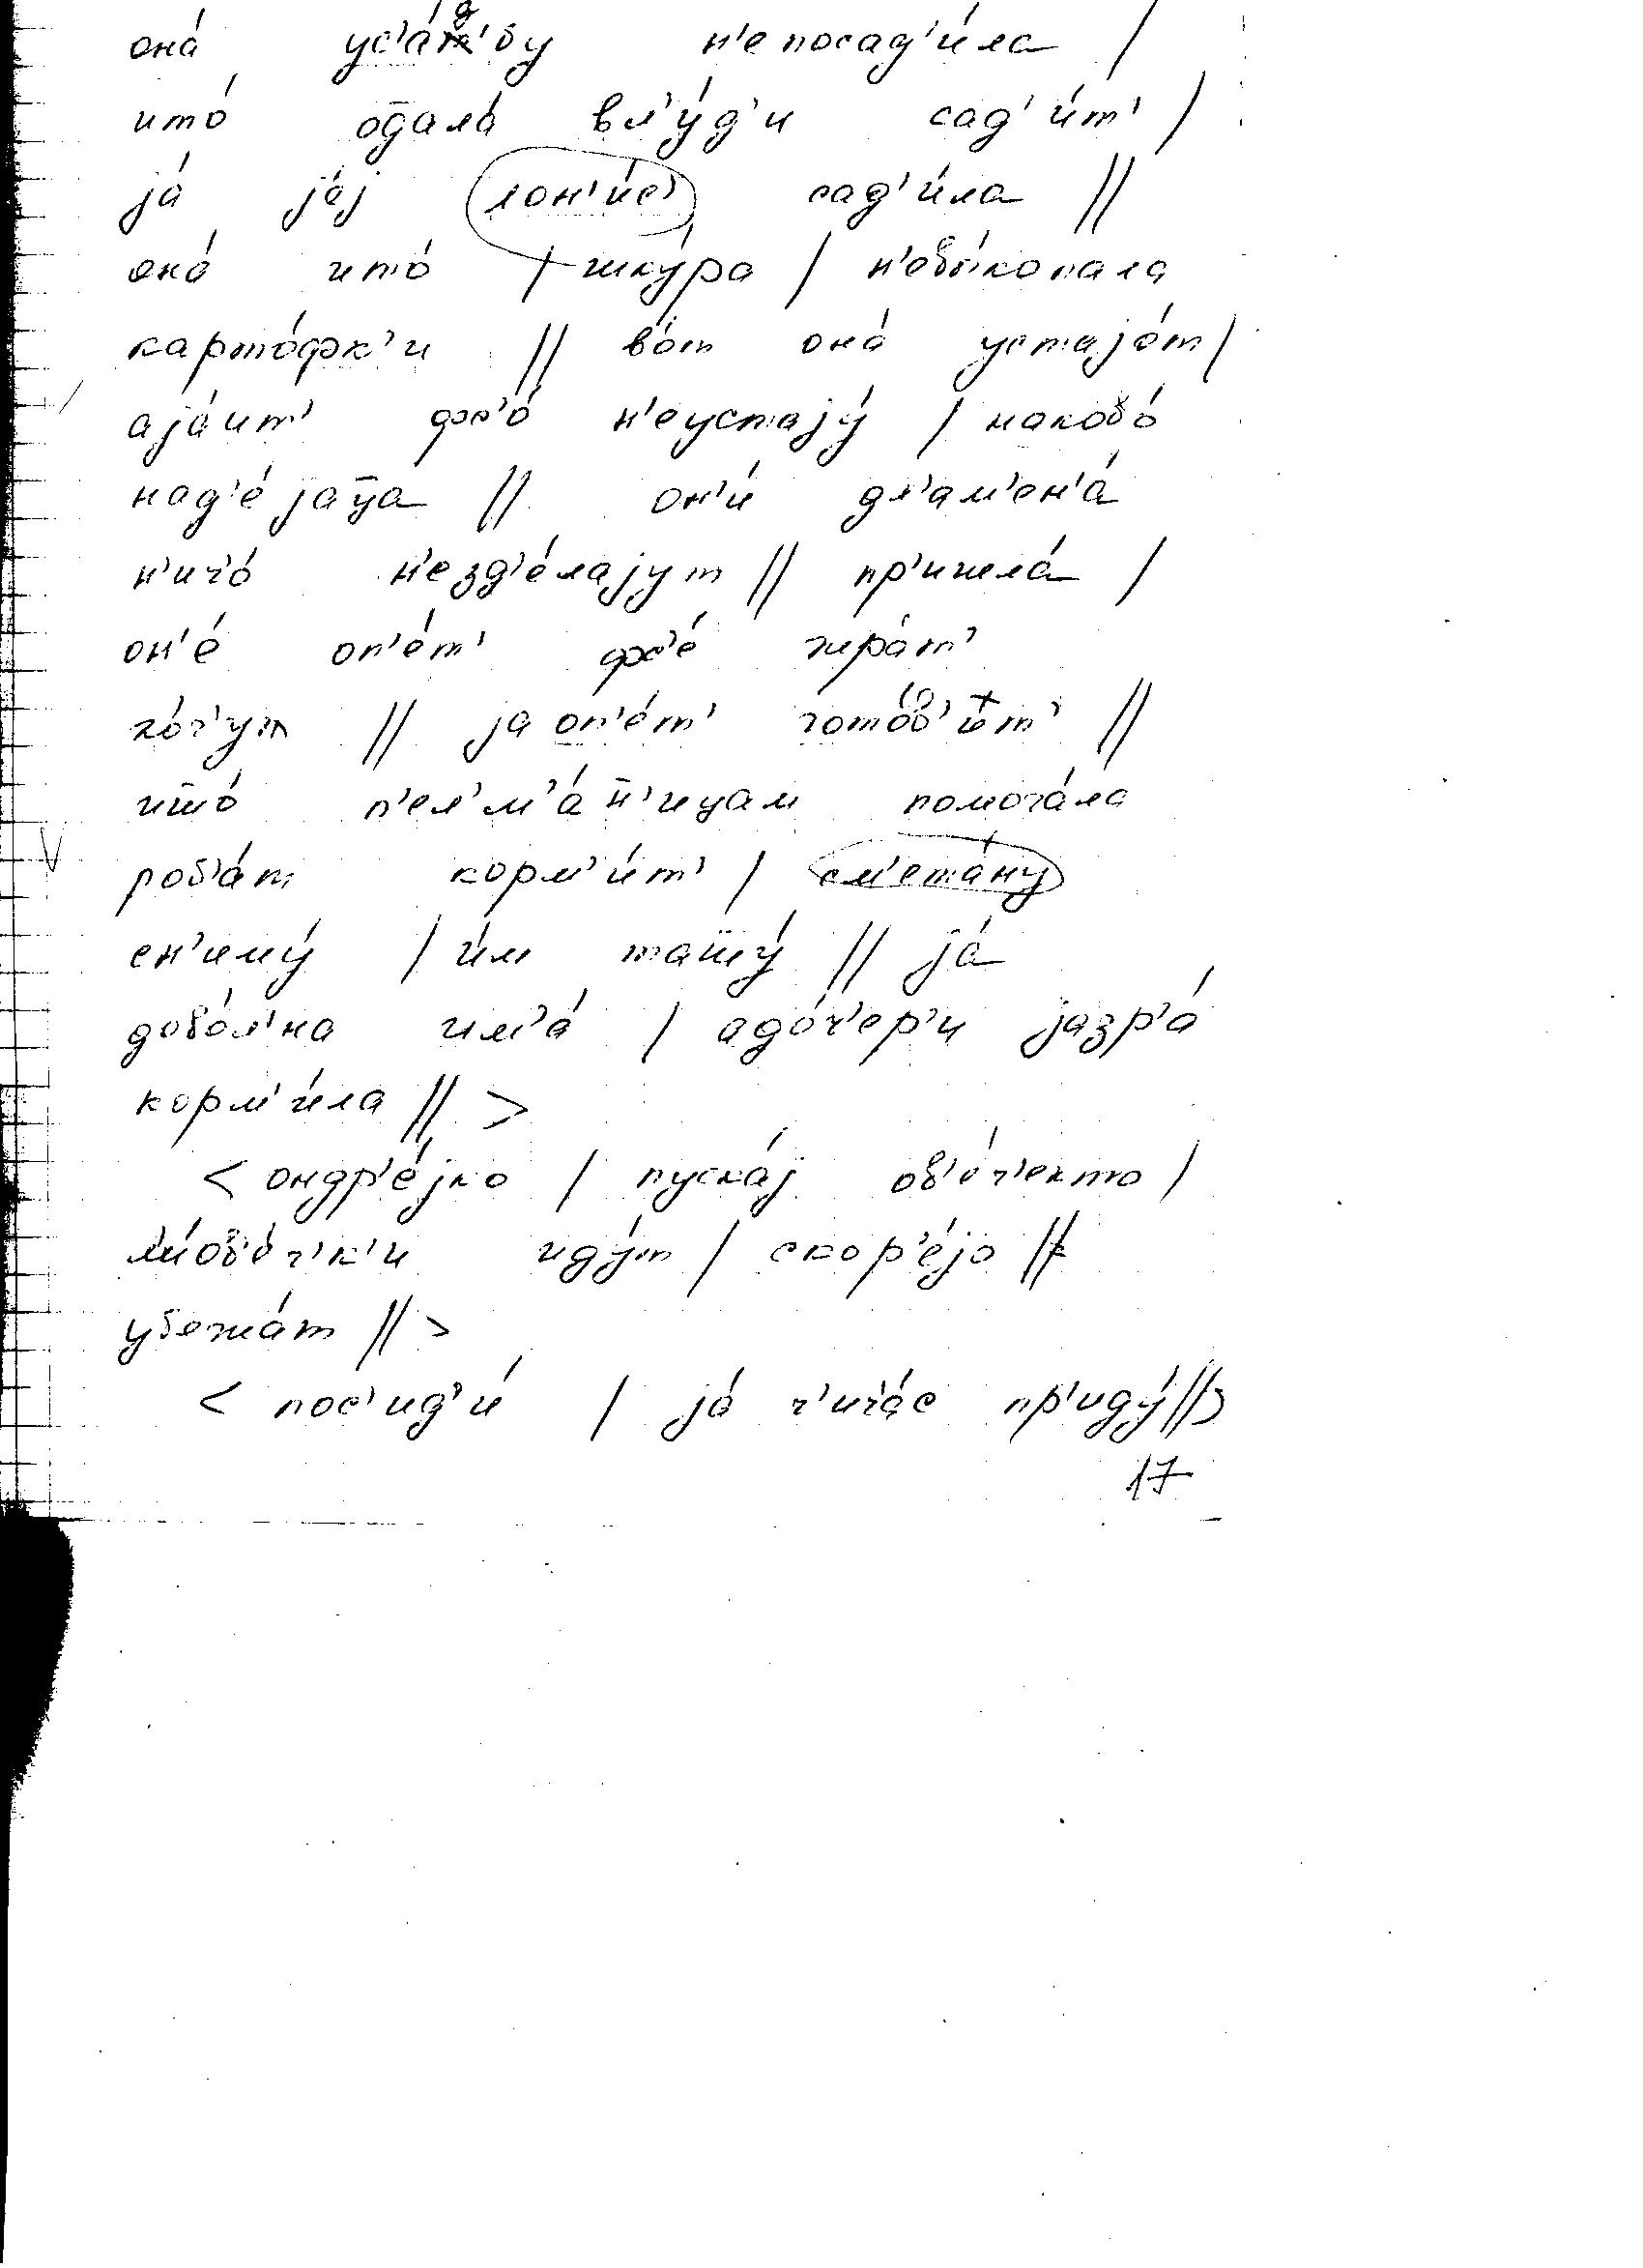 она́ ус'а́д'бу н'епосад'и́ла /
што́ од̄ала́ вл'у́д'и сад'и́т' /
jа́ jе́j лон'и́с' сад'и́ла //
она́ што́ / шку́ра / н'евы́копала
карто́фк'и // во́т она́ устаjо́т /
аjа́ит' фс'о́ н'еустаjу́ / наково́
над'е́jац̄а // он'и́ дл'ам'ен'а́
н'ич'о́ н'езд'е́лаjут // пр'ишла́ /
он'е́ оп'е́т' фс'е́ жра́т'
хо́ч'ут // jаоп'е́т' гото́в'ит' //
што́ п'ел'м'а́н̄'ицам помога́ла
роб'а́т корм'и́т' / см'ета́ну
сн'иму́ / и́м ташшу́ // jа́
дово́л'на им'а́ / адо́ч'ер'и jазр'а́
корм'и́ла // >
< ондр'е́jко / пуска́j ов'о́ч'екто /
ов'о́ч'к'и иду́т / скор'е́jо //
убежа́т // >
< пос'ид'и́ / jа́ ч'ич'а́с пр'иду́ // >
17